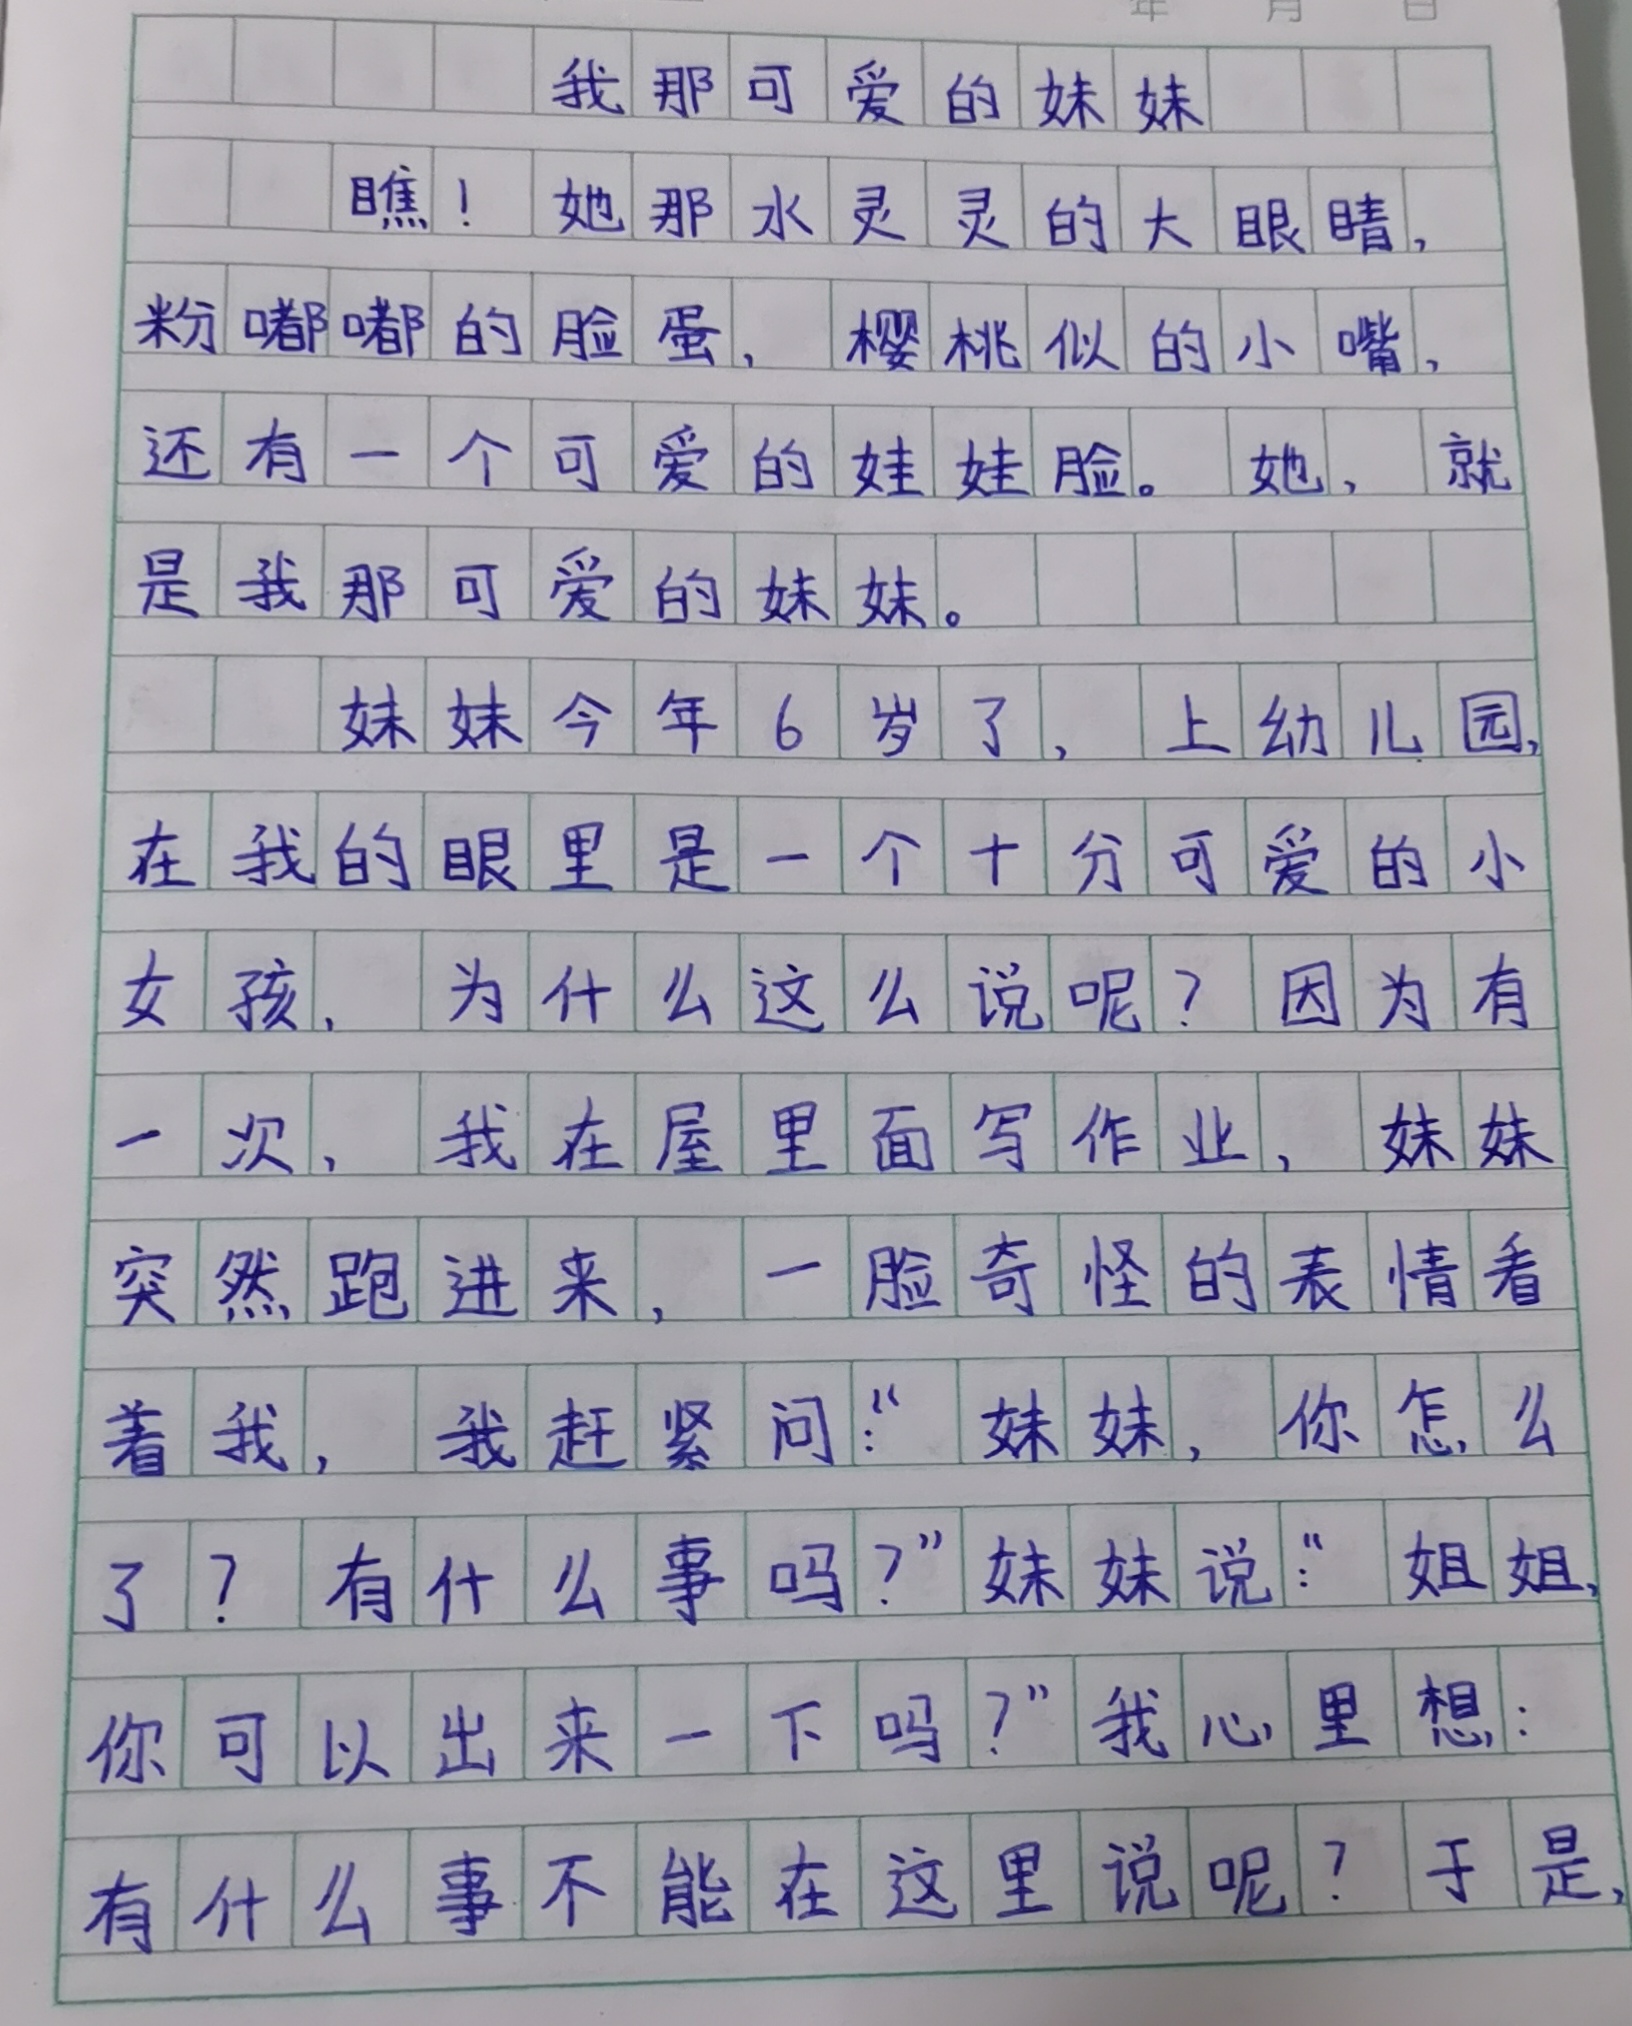 年 月 日
我那可爱的妹妹
瞧！她那水灵灵的大眼睛，
粉嘟嘟的脸蛋，樱桃似的小嘴，
还有一个可爱的娃娃脸。她，就
是我那可爱的妹妹。
妹妹今年6岁了，上幼儿园，
在我的眼里是一个十分可爱的小
女孩，为什么这么说呢？因为有
一次，我在屋里面写作业，妹妹
突然跑进来，一脸奇怪的表情看
着我，我赶紧问：“妹妹，你怎么
了？有什么事吗？”妹妹说：“姐姐，
你可以出来一下吗？”我心里想：
有什么事不能在这里说呢？于是，